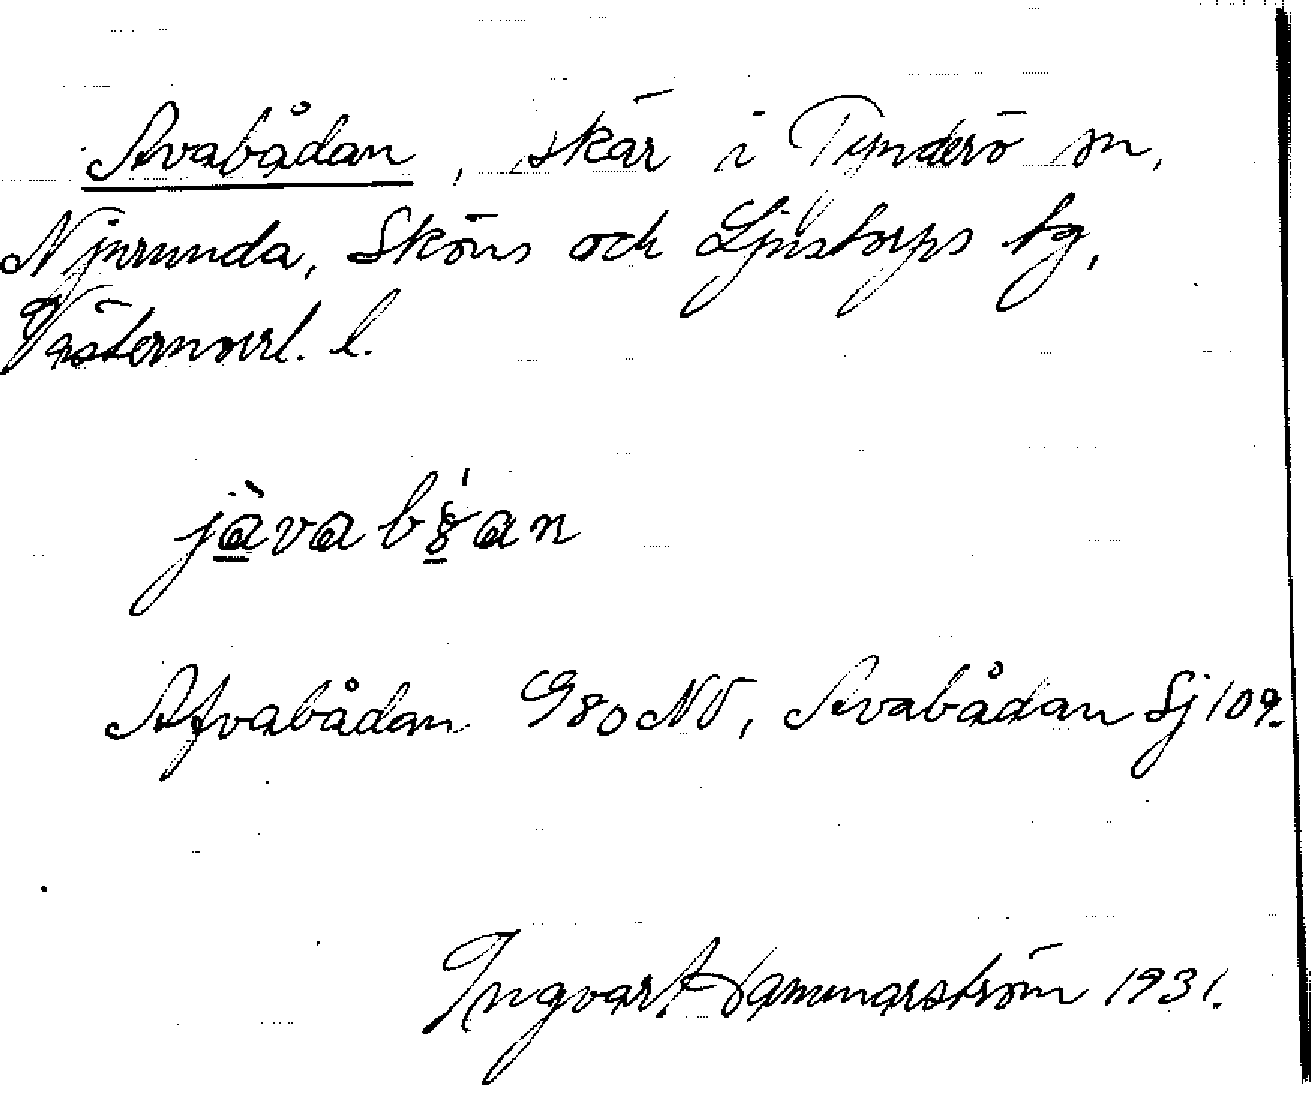 Avabådan, skär i Tynderö sn,
Njurunda, Sköns och Ljustorps tg,
Västernorrl. l.
Afvabådan G80NV, Avabådan Sj 109.
Ingvart Hammarström 1931.